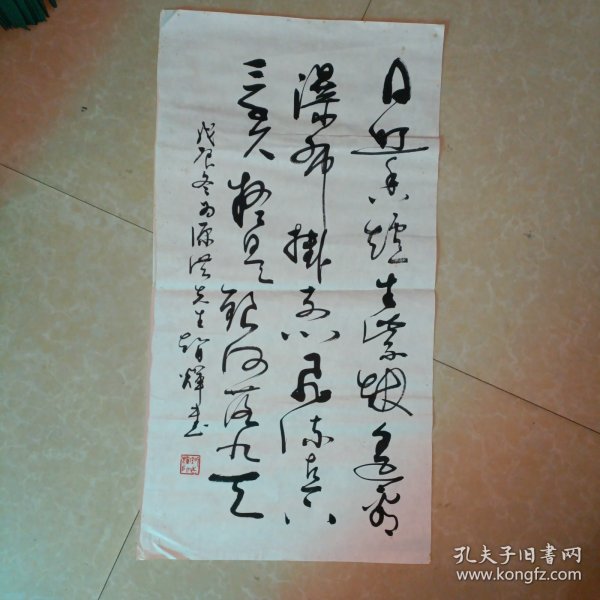 日照香炉生紫烟遥看
瀑布挂前川飞流直下
三千尺疑是银河落九天
戊辰冬为源洪先生 辉书
孔夫子旧书网
www.kongfz.com